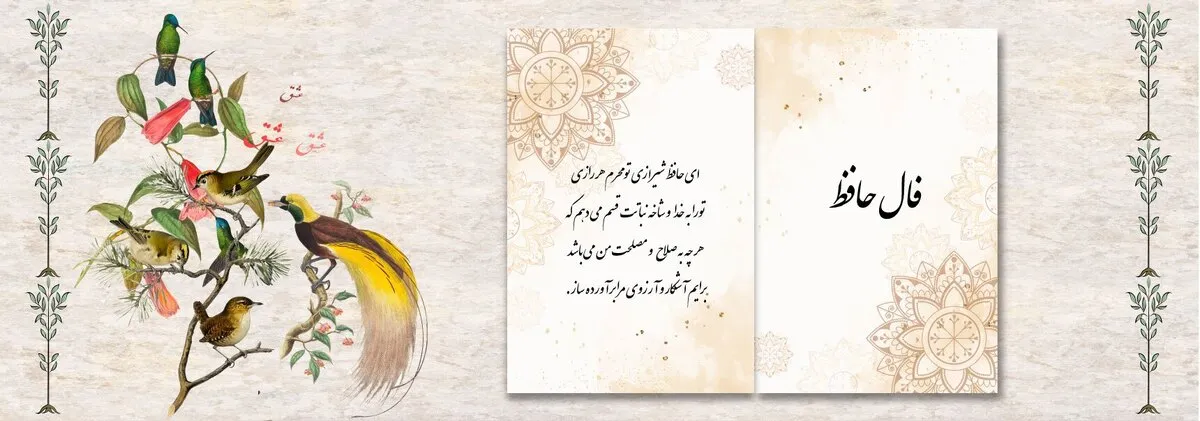 فال حافظ
ای حافظ شیرازی تو محرم هر رازی
تو را به خدا و شاخه نباتت قسم می دهم که
هر چه به صلاح و مصلحت من می باشد
برایم آشکار و آرزوی مرا برآورده ساز.
عشق
عشق
عشق